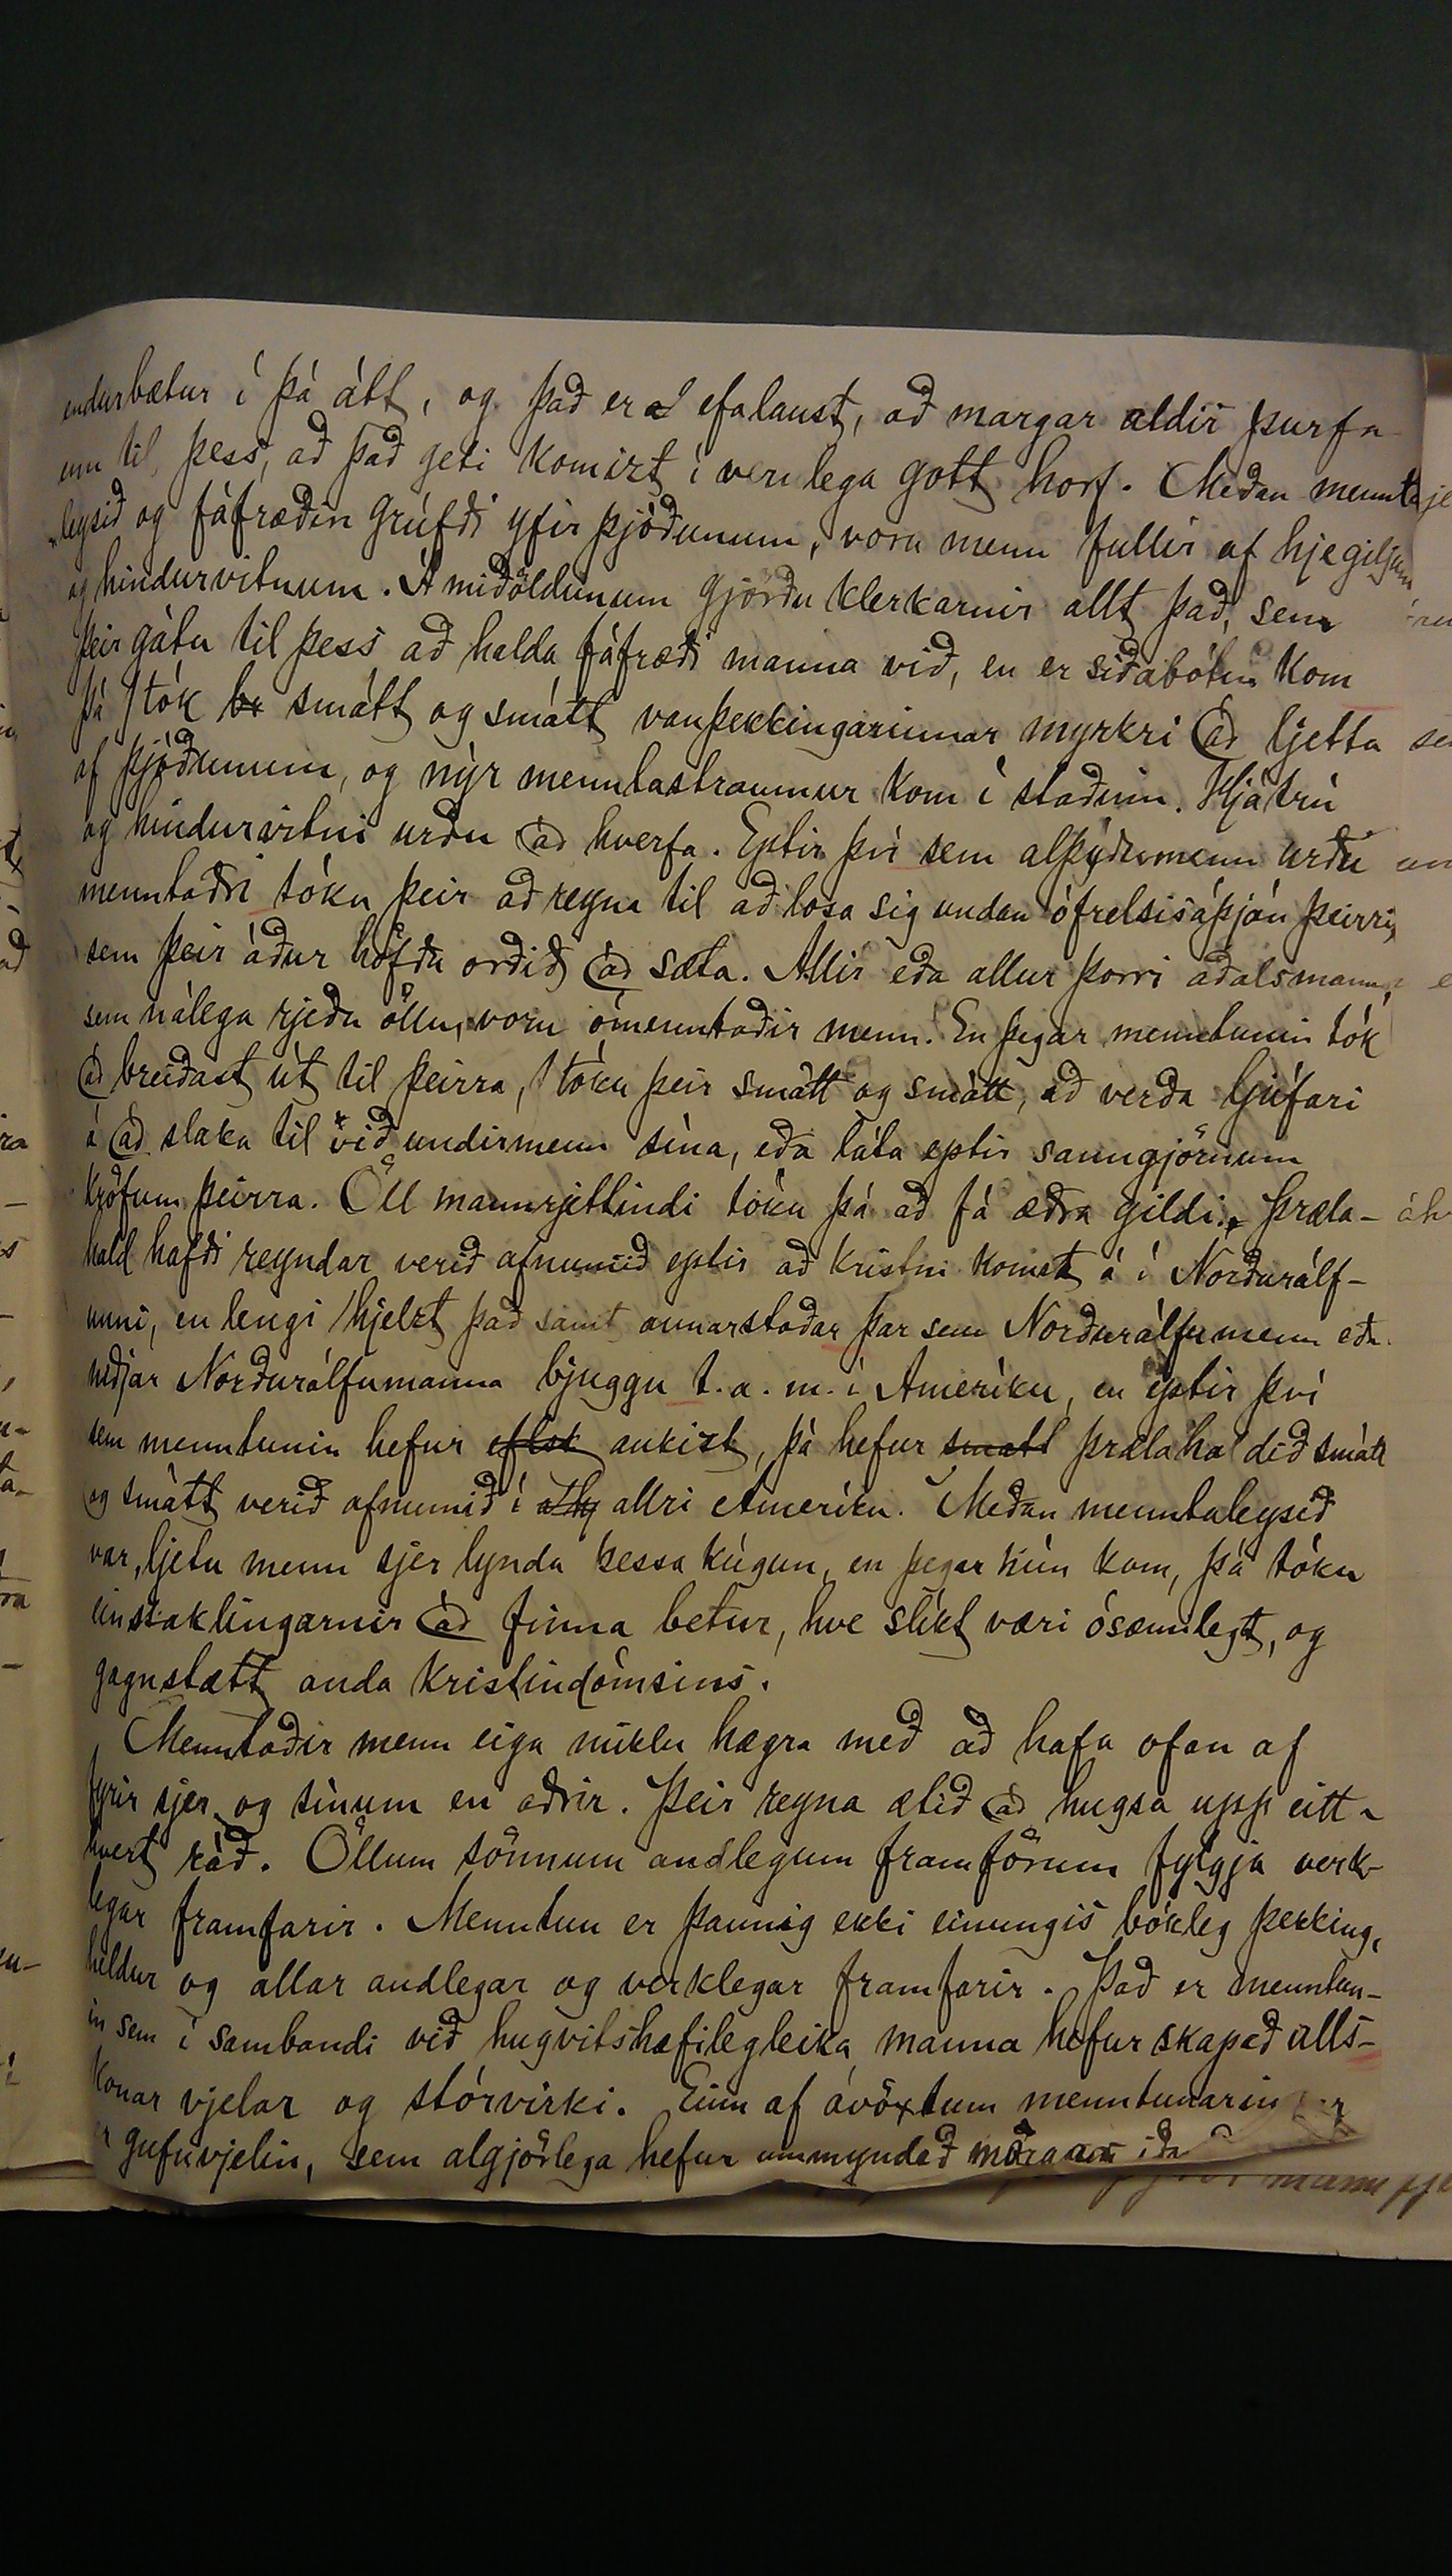 endurbætur í þá átt, og það er efalaust, að margar aldir þurfa
enn til þess, að það geti komizt í verulega gott horf. Meðan mennta-
leysið og fáfræðin grúfði yfir þjóðunum, voru menn fullir af hjegiljum
og hindurvitnum. Á miðöldunum gjörðu klerkarnir allt það, sem
þeir gátu til þess að halda fáfræði manna við, en er siðabótin kom
þá tók smátt og smátt vanþekkingarinnar myrkri að ljetta
af þjóðunum, og nýr menntastraumur kom í staðinn. Hjátrú
og hindurvitni urðu að hverfa. Eptir því sem alþýðumenn urðu
menntaðri tóku þeir að reyna til að losa sig undan ófrelsisáþján þeirri,
sem þeir áður höfðu orðið að sæta. Allir eða allur þorri aðalsmanna,
sem nálega rjeðu öllu, voru ómenntaðir menn. En þegar menntunin tók
að breiðast út til þeirra, tóku þeir smátt og smátt, að verða ljúfari
á að slaka til við undirmenn sína, eða láta eptir sanngjörnum
kröfum þeirra. Öll mannrjettindi tóku þá að fá æðra gildi. Þræla-
hald hafði reyndar verið afnumið eptir að kristni komst á í Norðurálf-
unni, en lengi hjelzt það samt annarstaðar þar sem Norðurálfumenn eða
niðjar Norðurálfumanna bjuggu t.a.m. í Ameríku, en eptir því
sem menntunin hefur eflsk aukizt, þá hefur smatt þrælahaldið smátt
og smátt verið afnumið í allri Ameríku. Meðan menntaleysið
var, ljetu menn sjer lynda þessa kúgun, en þegar hún kom, þá tóku
einstaklingarnir að finna betur, hve slíkt væri ósæmilegt, og
gagnstætt anda kristindómsins.
Menntaðir menn eiga miklu hægra með að hafa ofan af
fyrir sjer og sínum en aðrir. Þeir reyna ætíð að hugsa upp eitt-
hvert ráð. Öllum sönnum andlegum framförum fylgja verk-
legar framfarir. Menntun er þannig ekki einungis bókleg þekking,
heldur og allar andlegar og verklegar framfarir. Það er menntun-
in sem í sambandi við hugvitshæfilegleika manna hefur skapað alls-
konar vjelar og stórvirki. Einn af ávöxtum menntunarinnar
er gufuvjelin, sem algjörlega hefur ummyndað